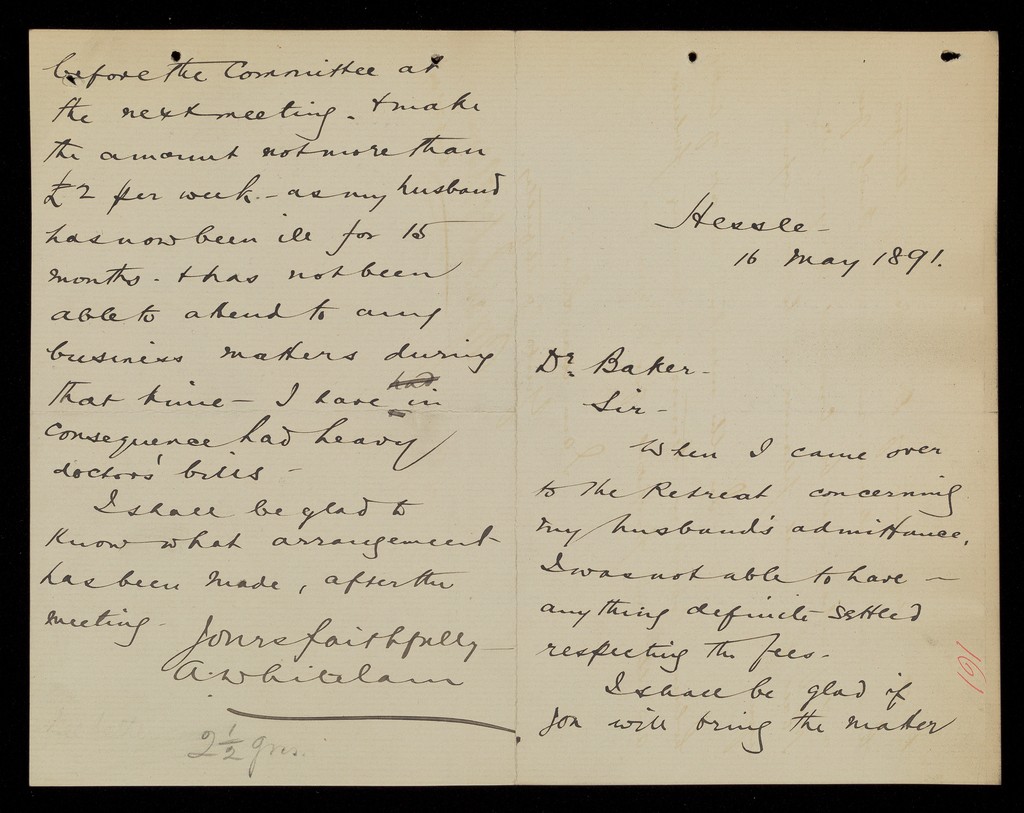 Hessle -
16 May 1891.
Dr. Baker -
Sir -
When I came over
to the Retreat concerning
my husband's admittance,
I was not able to have -
anything definite settled
respecting the fees -
I shall be glad if
you will bring the matter
191
before the Committee at
the next meeting - & make
the amount not more than
£2 per week - as my husband
has now been ill for 15
months - & has not been
able to attend to any
business matters during
had
that time - I have in
consequence had heavy
doctors' bills -
I shall be glad to
know what arrangement
has been made, after the
meeting -
Yours faithfully
A. Whitelam
2 1/2 gns.